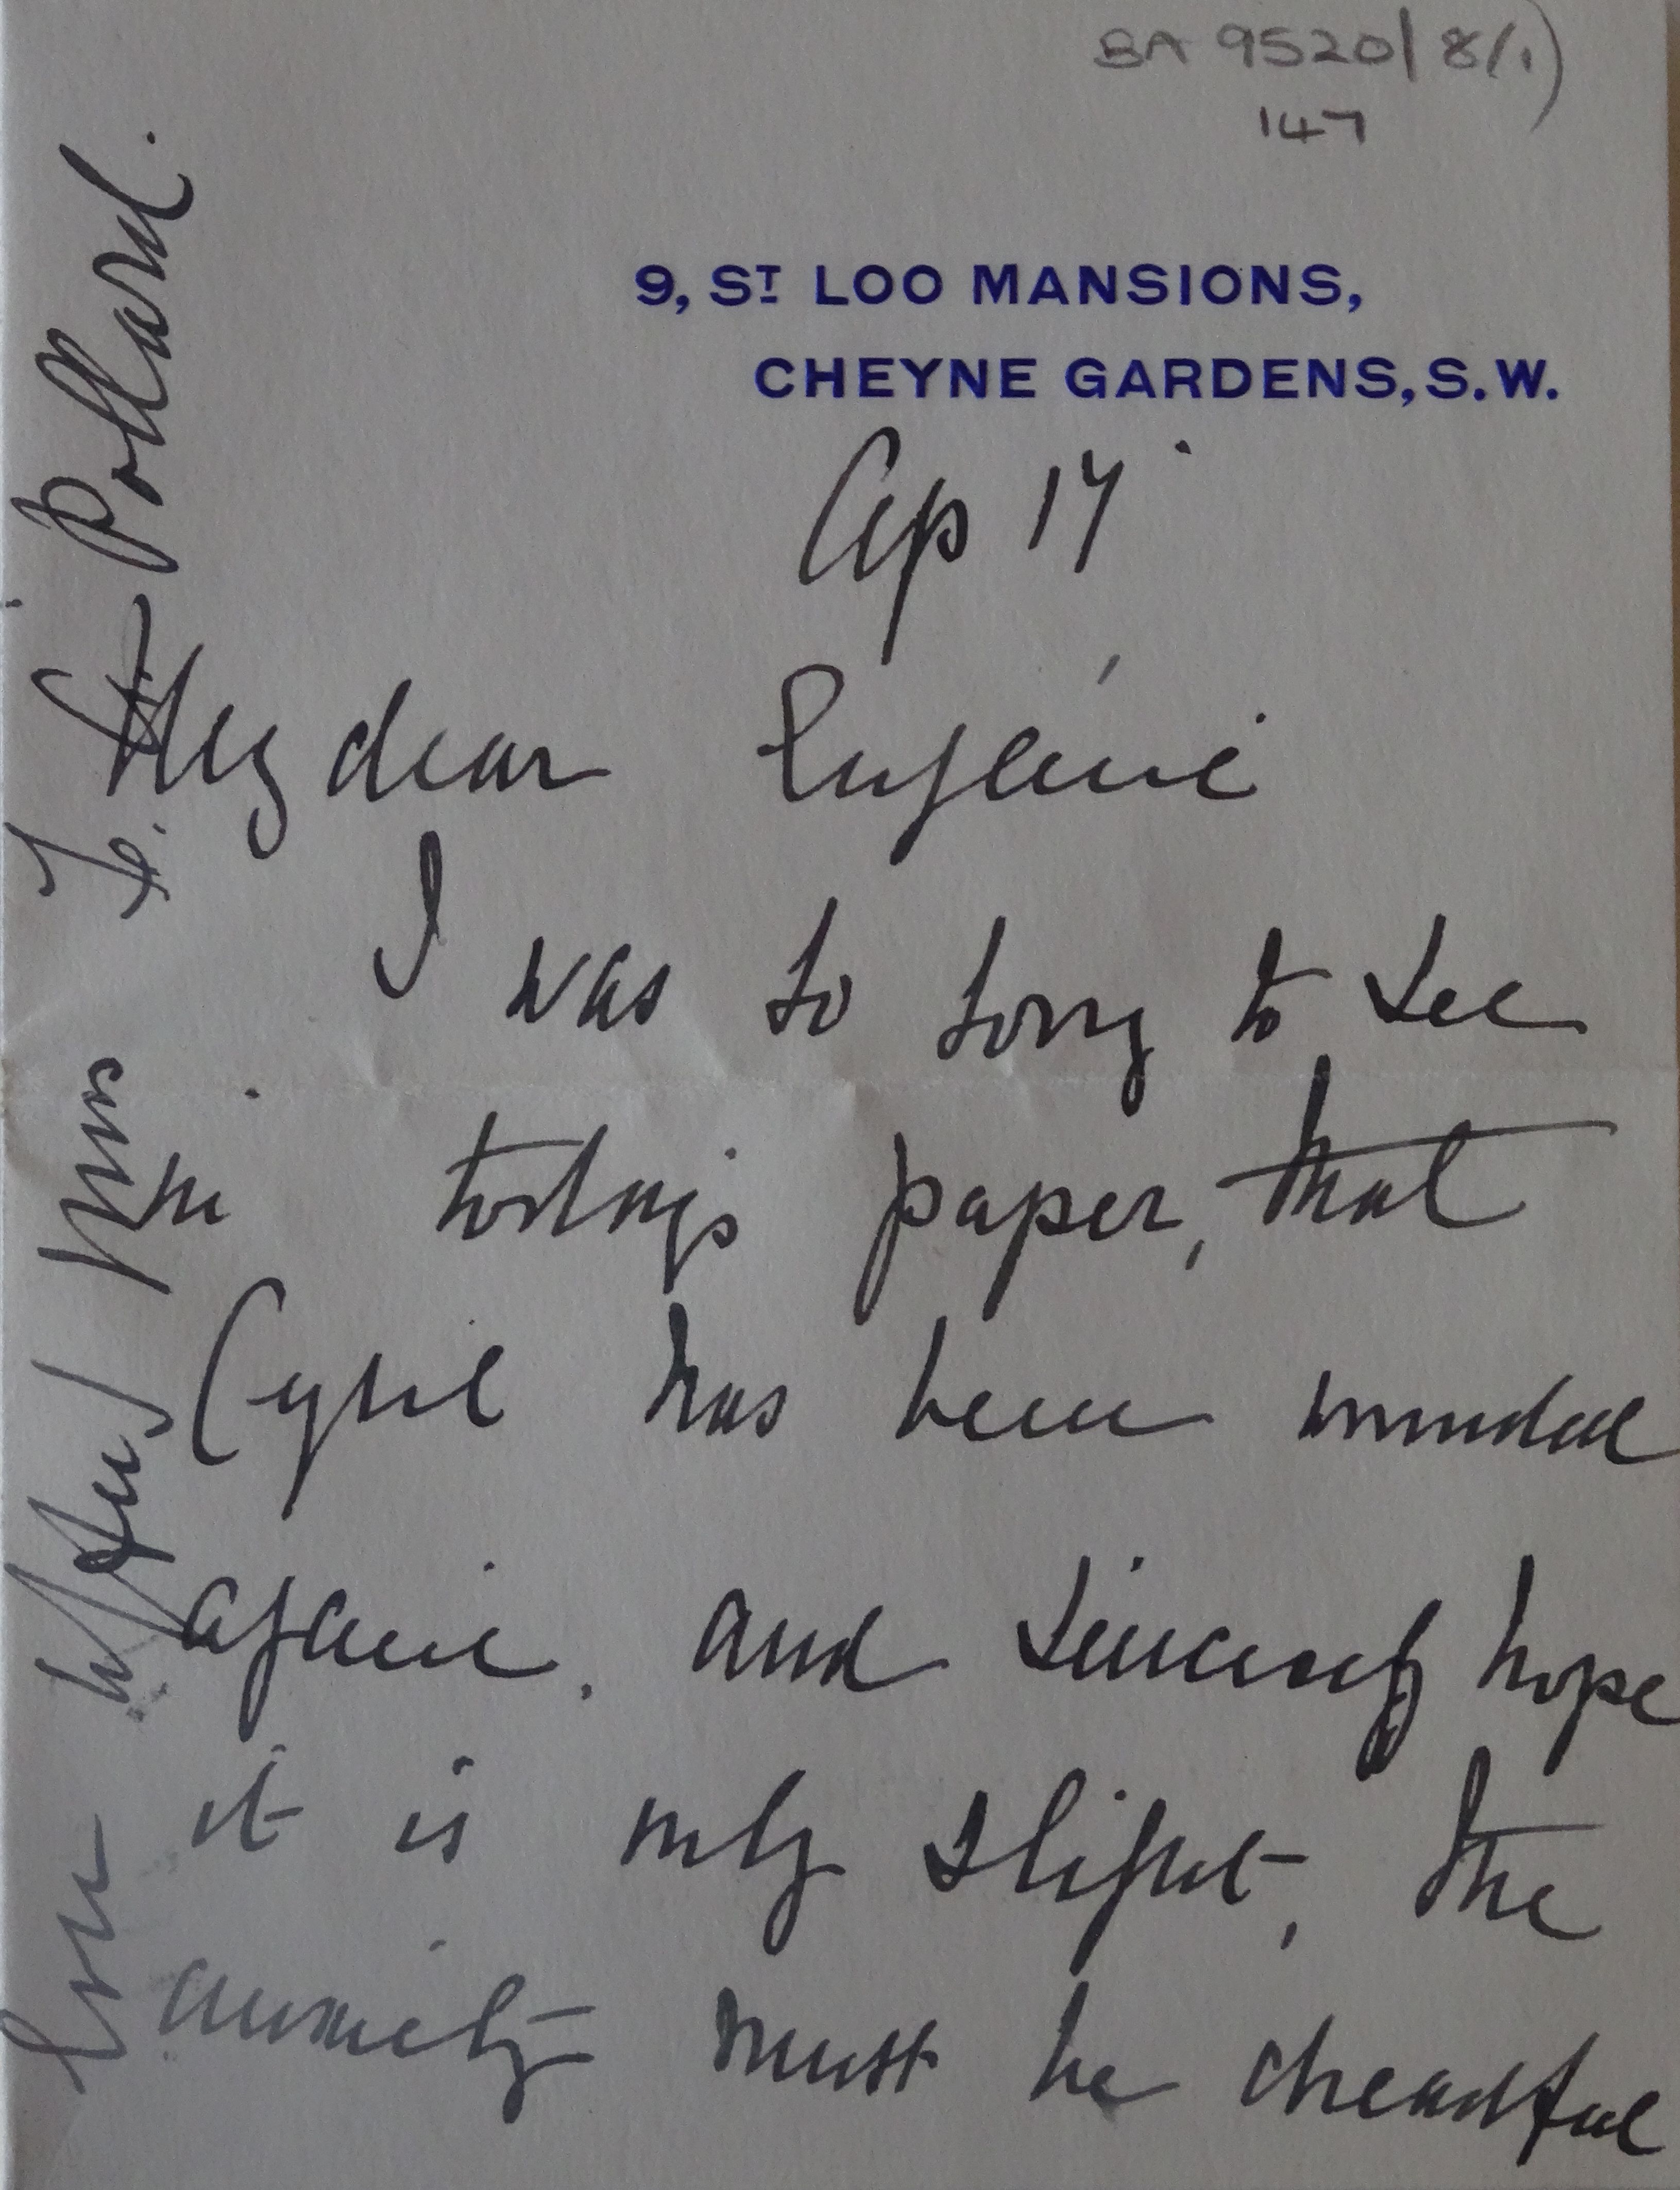 BA 9520/8(1)
147
9, ST LOO MANSIONS,
CHEYNE GARDENS, S.W.
Ap 17
My dear Eugénie
I was so sorry to see
in today's paper, that
Cyril has been wounded
again. and sincerely hope
it is only slight, the
anxiety must be dreadful
Miss
Pollard.